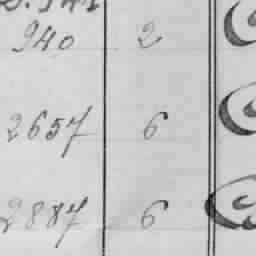 940 2
2657 6
2887 6